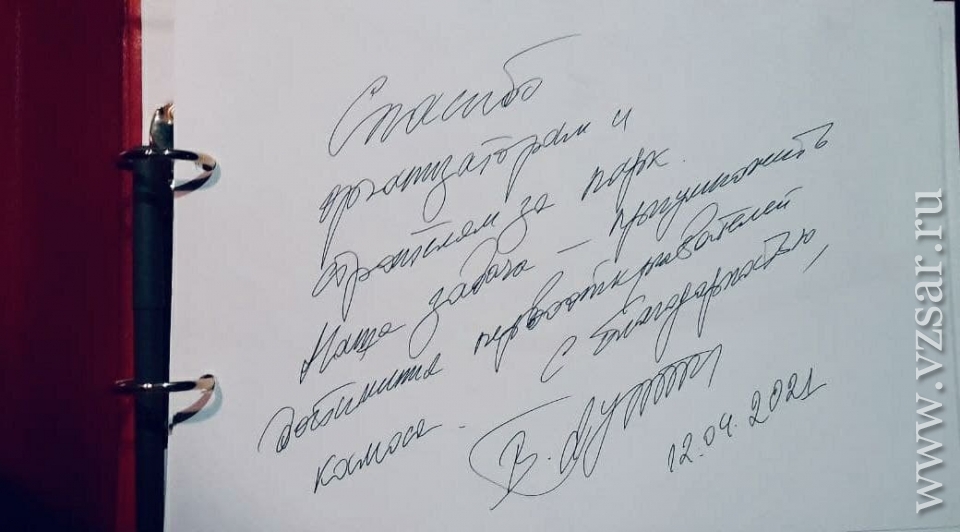 Спасибо
организаторам и
строителям за парк.
Наша задача – приумножить
достижения первооткрывателей
космоса.
С благодарностью,
В. Путин
12.04.2021
www.vzsar.ru